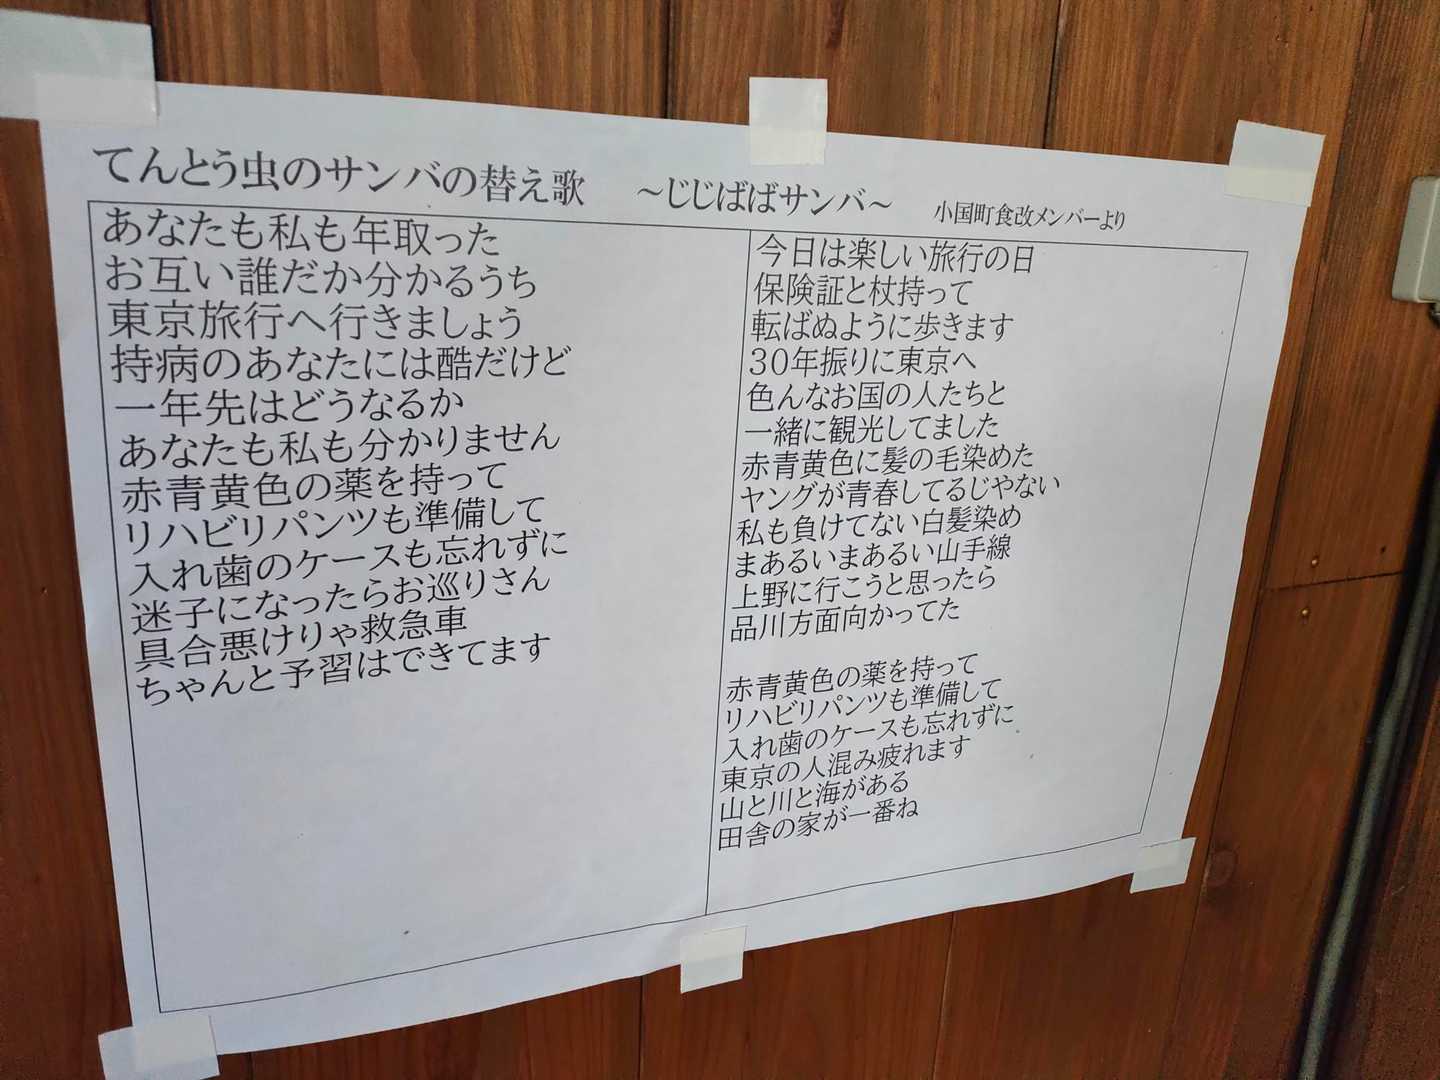 てんとう虫のサンバの替え歌　～じじばばサンバ～　小国町食改メンバーより
あなたも私も年取った
お互い誰だか分かるうち
東京旅行へ行きましょう
持病のあなたには酷だけど
一年先はどうなるか
あなたも私も分かりません
赤青黄色の薬を持って
リハビリパンツも準備して
入れ歯のケースも忘れずに
迷子になったらお巡りさん
具合悪けりゃ救急車
ちゃんと予習はできてます
今日は楽しい旅行の日
保険証と杖持って
転ばぬように歩きます
30年振りに東京へ
色んなお国の人たちと
一緒に観光してました
赤青黄色に髪の毛染めた
ヤングが青春してるじやない
私も負けてない白髪染め
まあるいまあるい山手線
上野に行こうと思ったら
品川方面向かってた
赤青黄色の薬を持って
リハビリパンツも準備して
入れ歯のケースも忘れずに
東京の人混み疲れます
山と川と海がある
田舎の家が一番ね